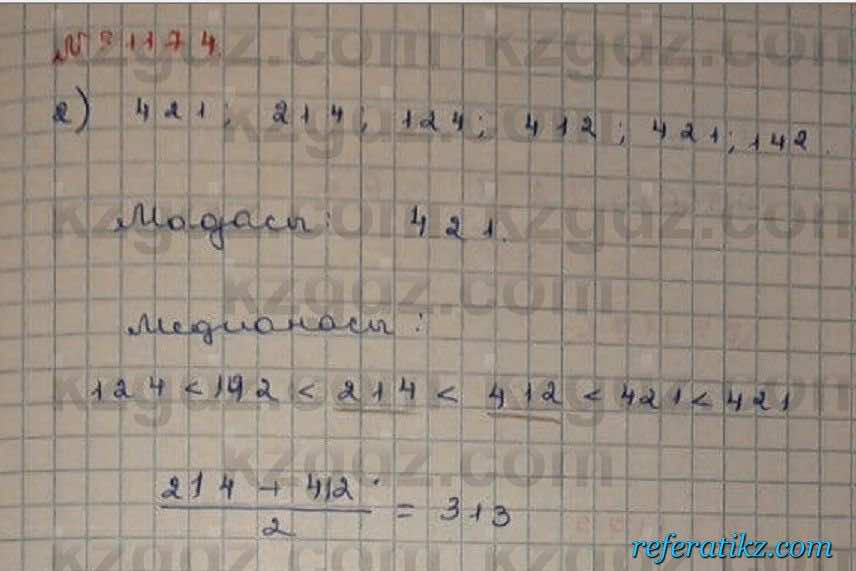 № 1174.
2) 421; 214; 124; 412; 421; 142.
Модасы: 421.
Медианасы:
124 < 192 < 214 < 412 < 421 < 421
214 + 412
2
= 313
kzgdz.com
referatikz.com